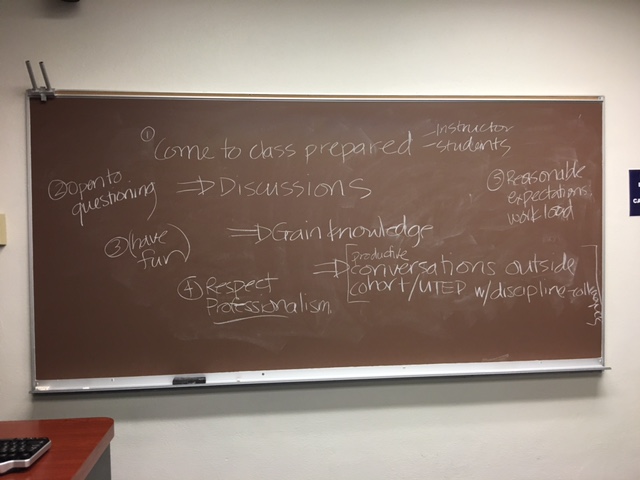 ① Come to class prepared - Instructor
- students
② Open to
questioning ⇒ Discussions
⑤ Reasonable
expectations
work load
③ (have
fun)
⇒ Gain knowledge
④ Respect
Professionalism.
⇒ [productive
conversations outside
cohort/UTED w/discipline